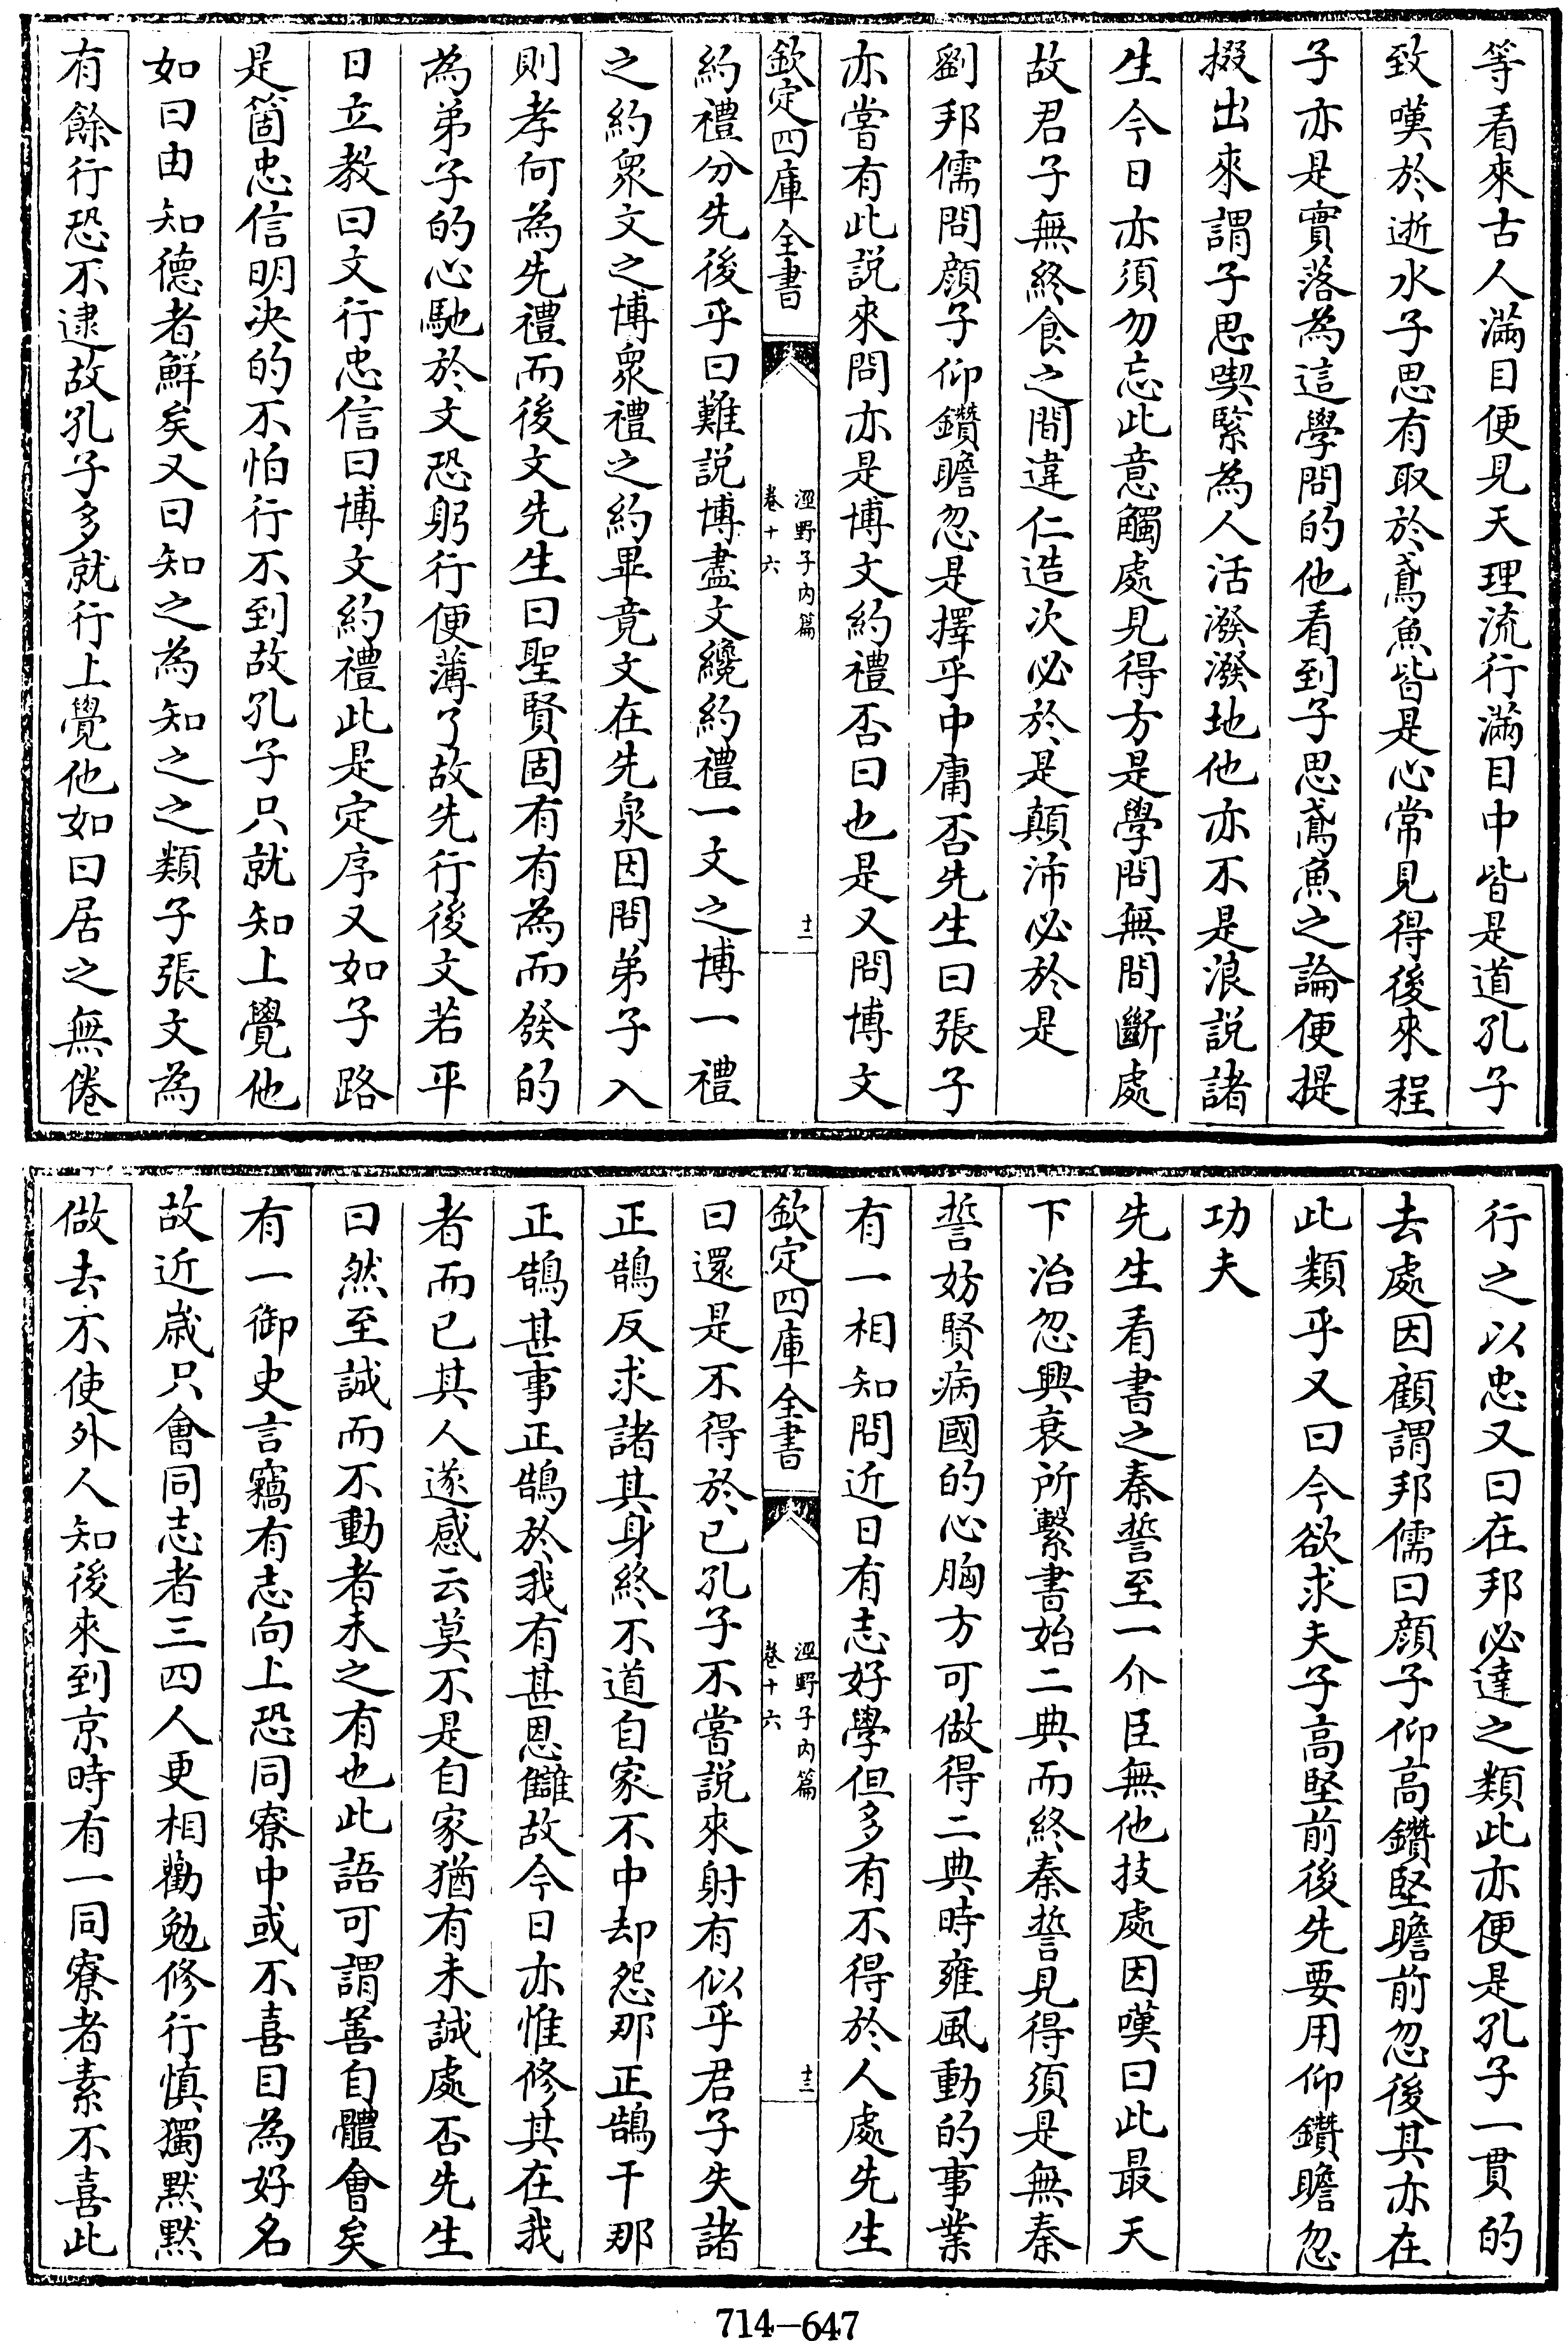 等看來古人滿目便見天理流行滿目中皆是道孔子
致嘆於逝水子思有取於鳶魚皆是心常見得後來程
子亦是實落為這學問的他看到子思鳶魚之論便提
掇出來謂子思喫緊為人活潑潑地他亦不是浪說諸
生今日亦須勿忘此意觸處見得方是學問無間斷處
故君子無終食之間違仁造次必於是顛沛必於是
劉邦儒問顔子仰鑽瞻忽是擇乎中庸否先生曰張子
亦嘗有此説來問亦是博文約禮否曰也是又問博文
欽定四庫全書
涇野子內篇
卷十六
十二
約禮分先後乎曰難説博盡文纔約禮一文之博一禮
之約衆文之博衆禮之約畢竟文在先泉因問弟子入
則孝何為先禮而後文先生曰聖賢固有有為而發的
為弟子的心馳於文恐躬行便薄了故先行後文若平
日立教曰文行忠信曰博文約禮此是定序又如子路
是箇忠信明決的不怕行不到故孔子只就知上覺他
如曰由知德者鮮矣又曰知之為知之之類子張文為
有餘行恐不逮故孔子多就行上覺他如曰居之無倦
行之以忠又曰在邦必達之類此亦便是孔子一貫的
去處因顧謂邦儒曰顔子仰高鑽堅瞻前忽後其亦在
此類乎又曰今欲求夫子高堅前後先要用仰鑽瞻忽
功夫
先生看書之秦誓至一介臣無他技處因嘆曰此最天
下治忽興衰所繫書始二典而終秦誓見得須是無秦
誓妨賢病國的心胸方可做得二典時雍風動的事業
有一相知問近日有志好學但多有不得於人處先生
欽定四庫全書
涇野子內篇
卷十六
十三
曰還是不得於己孔子不嘗説來射有似乎君子失諸
正鵠反求諸其身終不道自家不中却怨那正鵠干那
正鵠甚事正鵠於我有甚恩讎故今日亦惟修其在我
者而已其人遂感云莫不是自家猶有未誠處否先生
曰然至誠而不動者未之有也此語可謂善自體會矣
有一御史言竊有志向上恐同寮中或不喜目為好名
故近歲只會同志者三四人更相勸勉修行慎獨默默
做去不使外人知後來到京時有一同寮者素不喜此
714—647